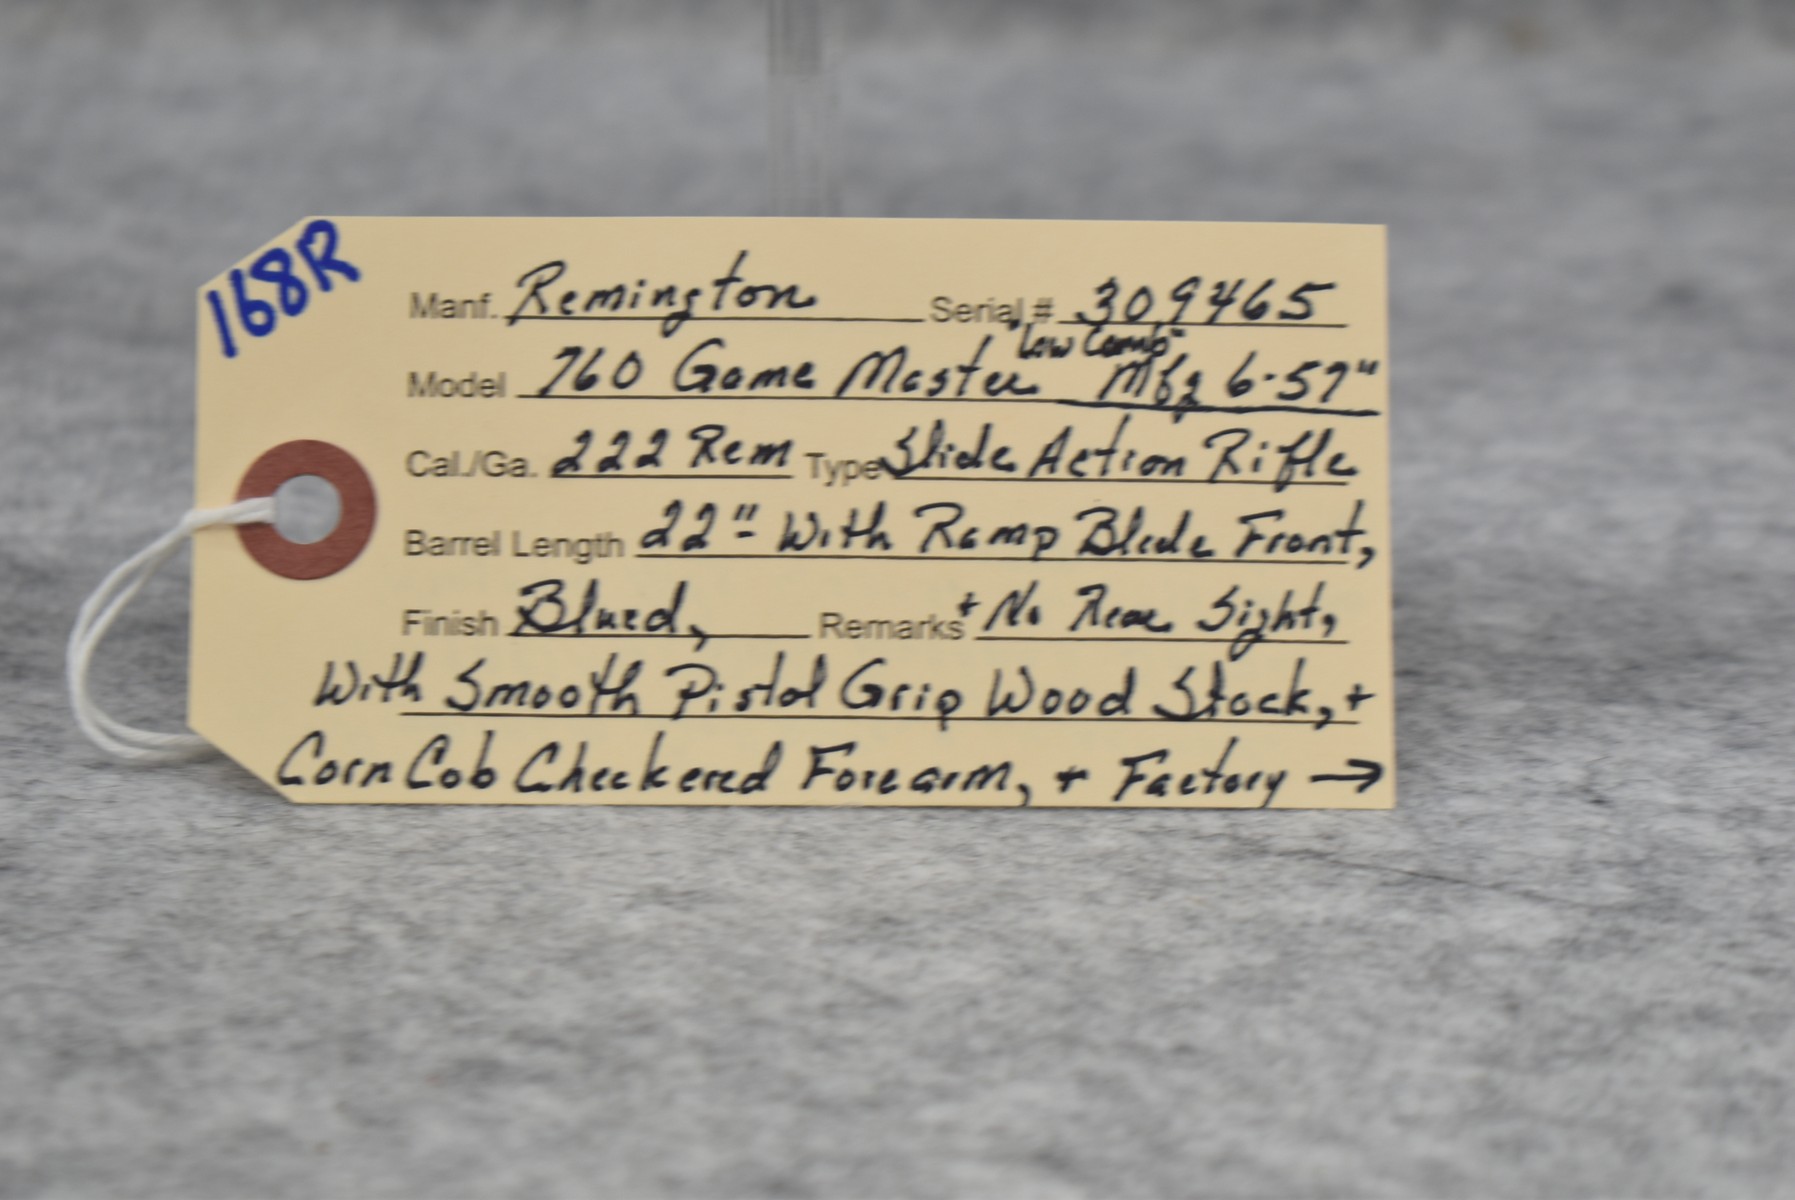 168R
Manf. Remington Serial # 309465
"Low Comb"
Model 760 Game Master Mfg 6-57"
Cal./Ga. 222 Rem Type Slide Action Rifle
Barrel Length 22" - With Ramp Blade Front,
Finish Blued, Remarks + No Rear Sight,
With Smooth Pistol Grip Wood Stock, +
Corn Cob Checkered Forearm, + Factory →